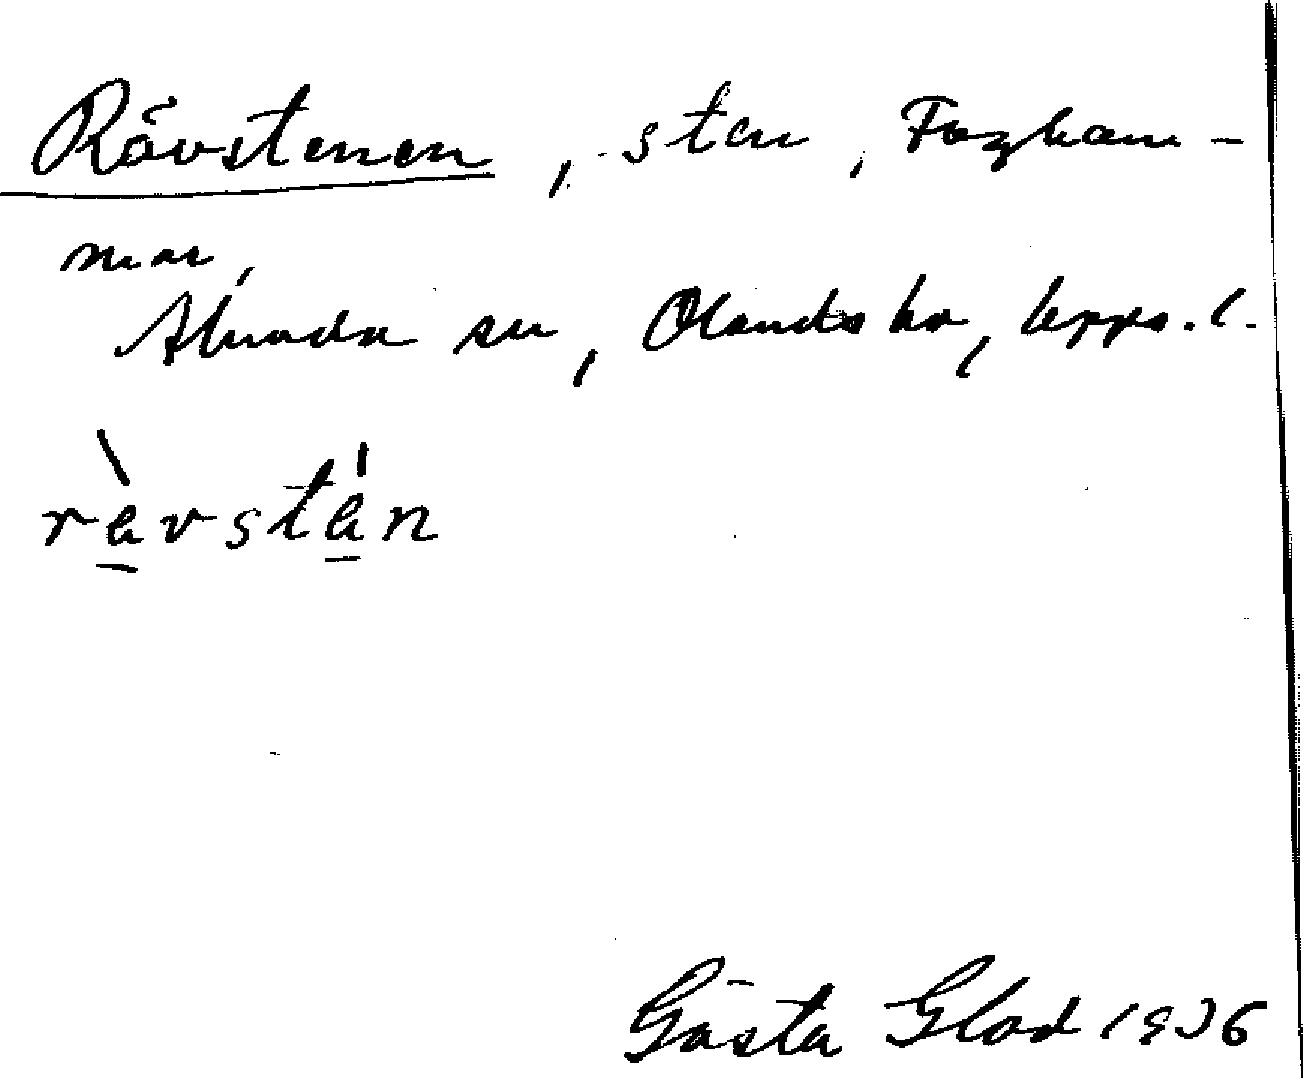 Rävstenen, sten, Fogham-
mar,
Alunda sn, Olands hd, Upps. l.
ràvsta̱'n
Gösta Glad 1936